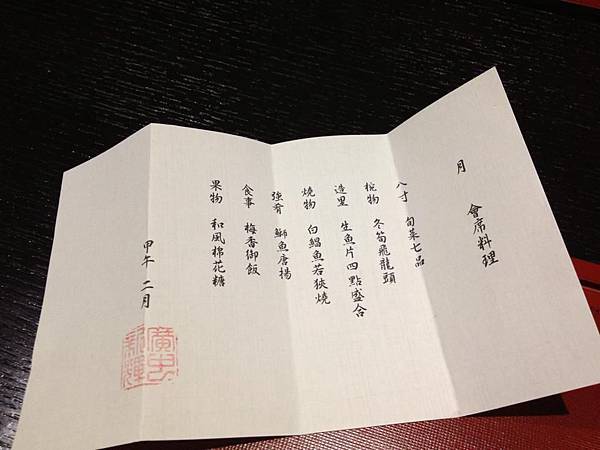 月 會席料理
八寸 旬菜七品
椀物 冬筍飛龍頭
造里 生魚片四點盛合
燒物 白鯧魚若狹燒
強肴 鰤魚唐揚
食事 梅香御飯
果物 和風棉花糖
甲午 二月